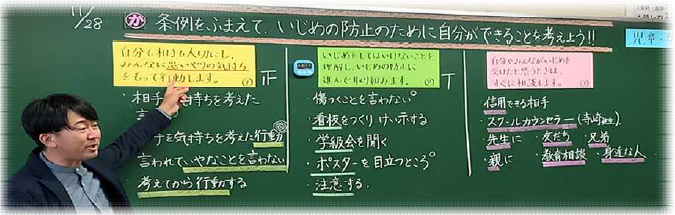 11/28
か 条例をふまえて、いじめの防止のために自分ができることを考えよう!!
自分も相手も大切にし、
みんなに思いやりの気持ち
をもって行動します。
正
・相手 気持ちを考えた
言
気持ちを考えた行動
言われていやなことを言わない
考えてから行動する
いじめをしてはいけないことを
理解し、いじめの防止に
進んで取り組みます。
T
傷つくことを言わない。
・看板をつくり けい示する
・学級会を開く
・ポスターを目立つところ。
・注意する。
自分やみんながいじめを
受けたと思うときは、
すぐに相談します。
信用できる相手
・スクールカウンセラー
・先生に ・友だち ・兄弟
・親に ・教育相談 ・身近な人
児童